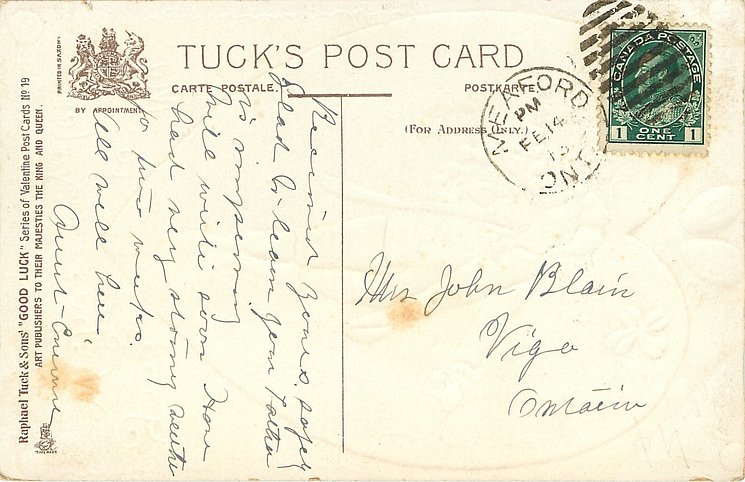 TUCK'S POST CARD
CARTE POSTALE.
POSTKARTE.
(FOR ADDRESS ONLY.)
BY APPOINTMENT
PRINTED IN SAXONY
Raphael Tuck & Sons' "GOOD LUCK" Series of Valentine Post Cards No 19
ART PUBLISHERS TO THEIR MAJESTIES THE KING AND QUEEN.
CANADA POSTAGE
1 ONE CENT 1
MEAFORD
PM
FE 14
ONT
Received yours safely
glad to learn your Father
is improving
will write soon Have
had very stormy weather
for two weeks.
All well here
Aunt
Mrs John Blain
Vigo
Ontario